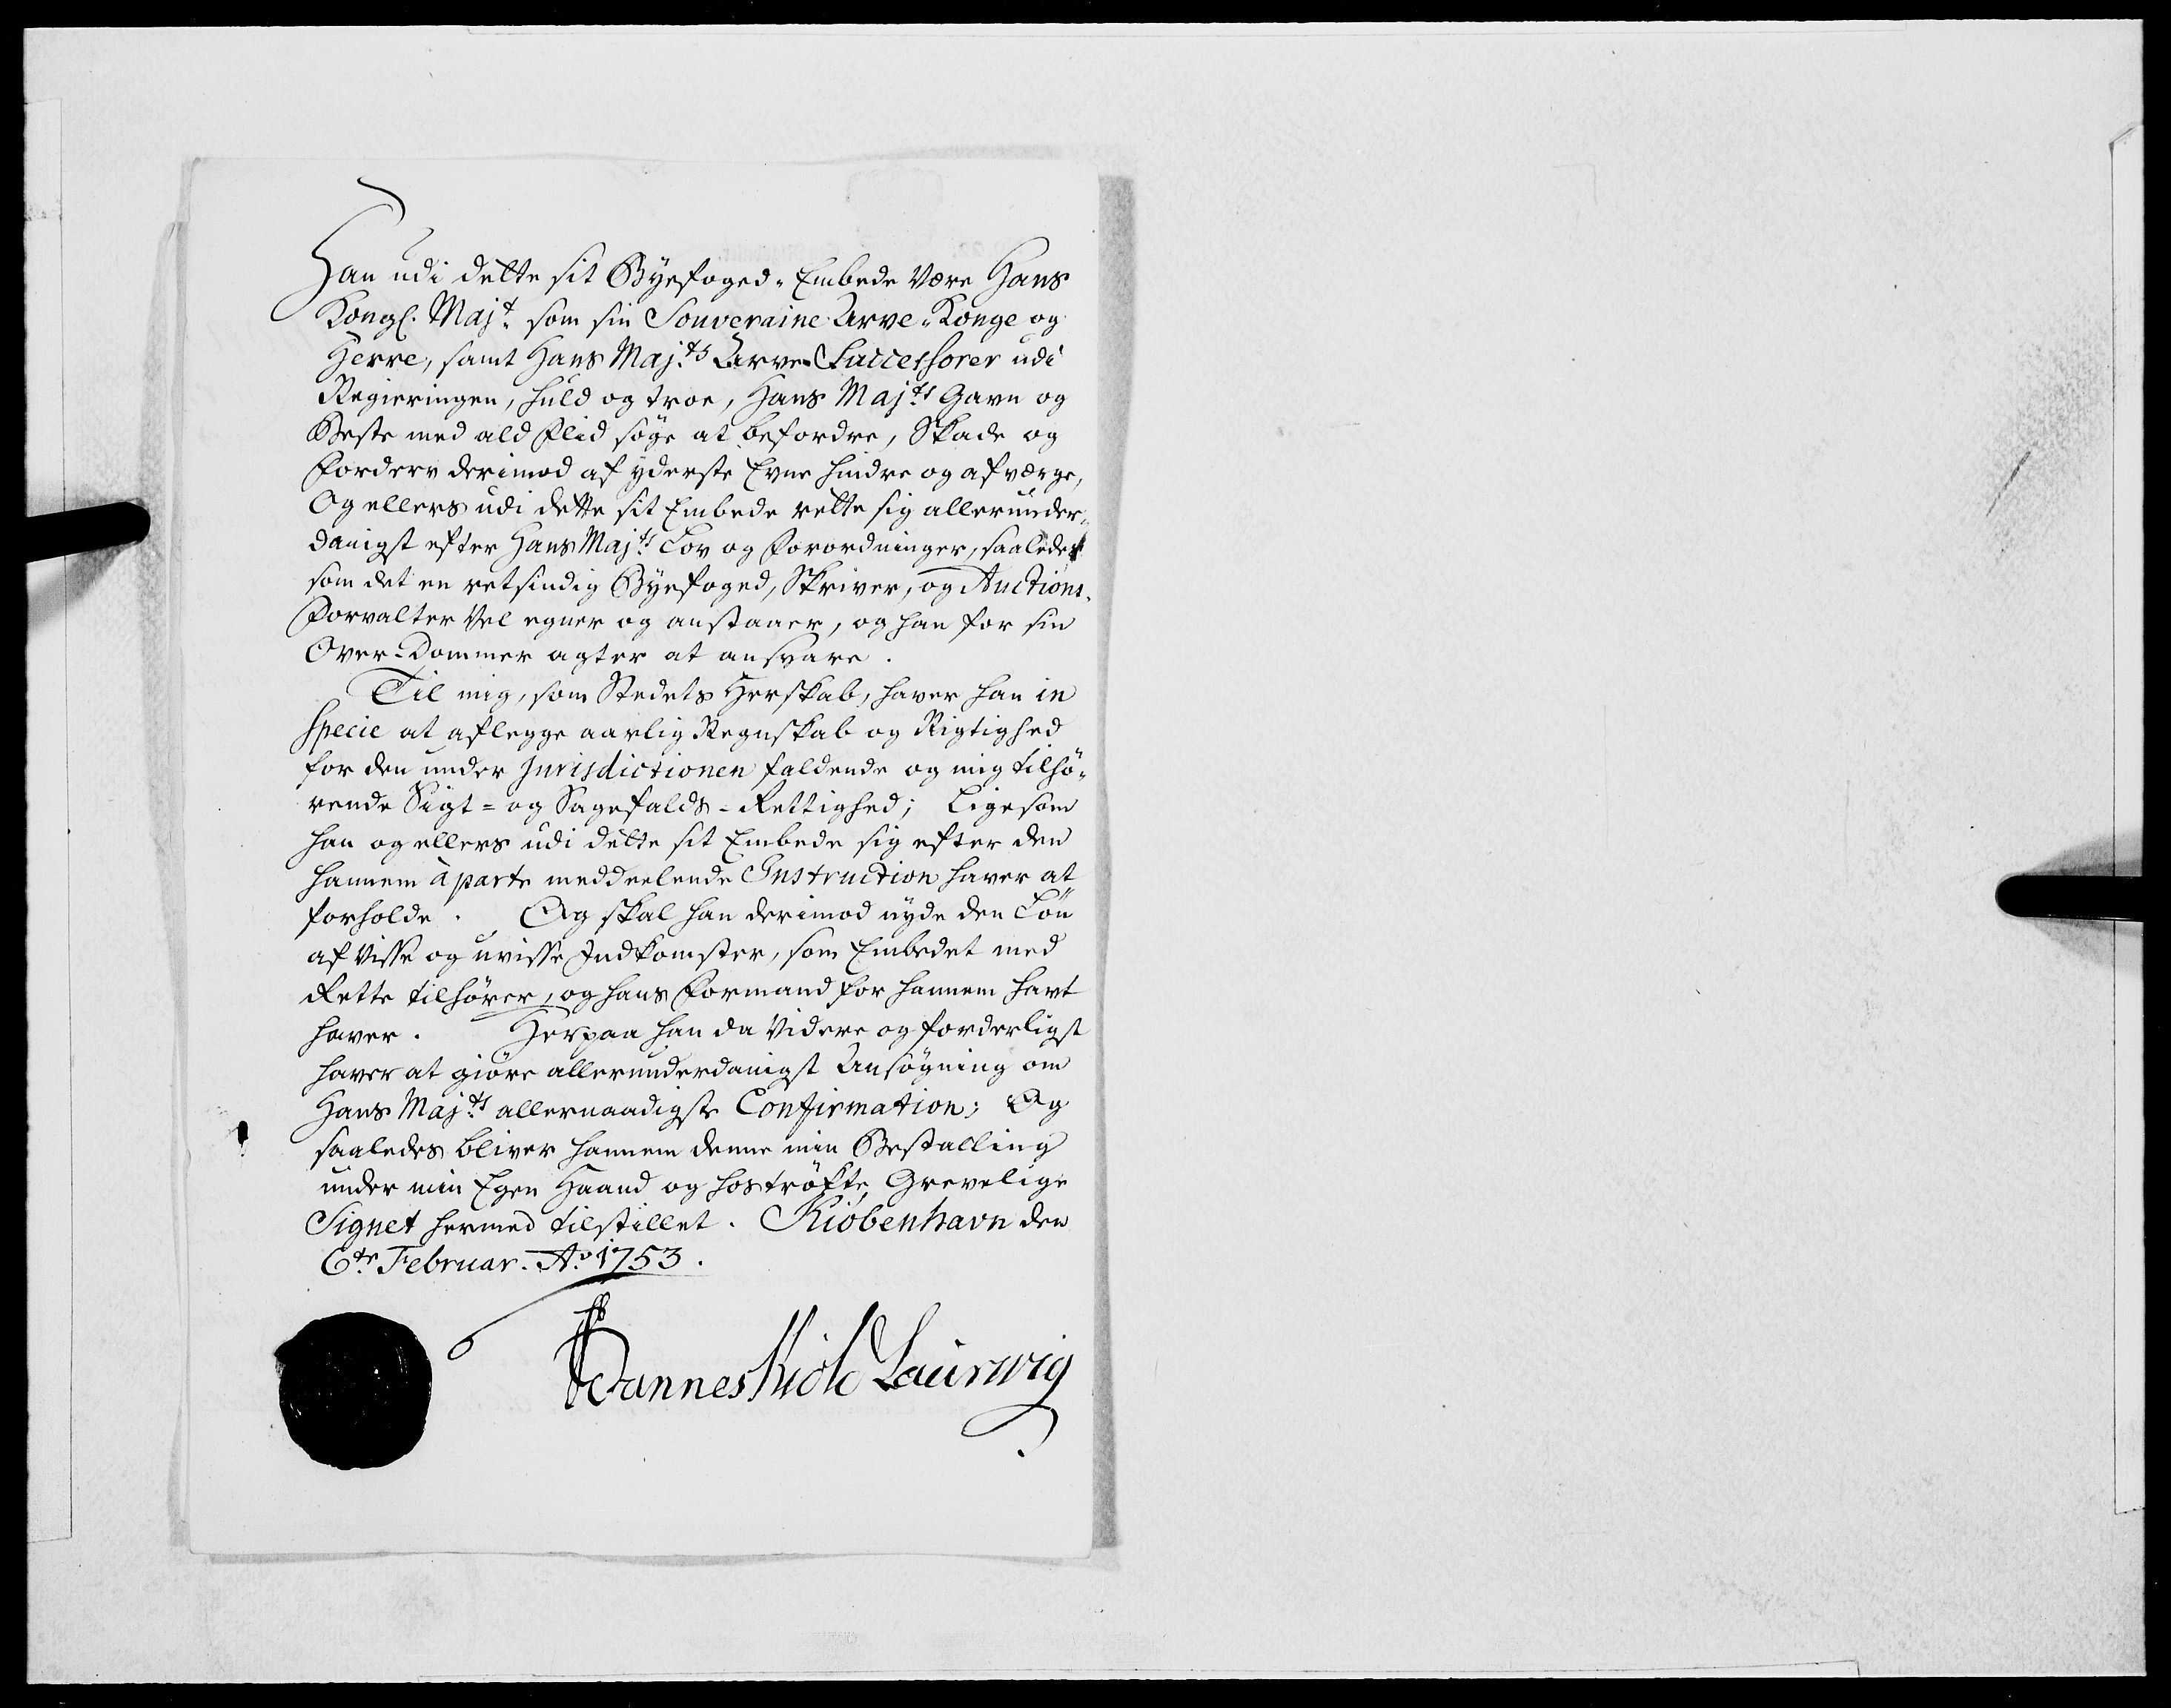 Han udi dette sit Byefoged-Embede være Hans
Kongl. Majt. som sin Souveraine Arve-Konge og
Herre, samt Hans Majts. Arve-Successorer udi
Regieringen, huld og troe, Hans Majts. Gavn og
Beste med ald Flid søge at befordre, Skade og
Forderv derimod af yderste Evne hindre og afværge,
Og ellers udi dette sit Embede rette sig allerunder-
danigst efter Hans Majts. Lov og Forordninger, saaledes
som det en retsindig Byefoged, Skriver, og Auctions-
Forvalter Vel egner og anstaaer, og han for sin
Over-Dommer agter at ansvare.
Til mig, som Stedets Herskab, haver han in
Specie at aflegge aarlig Regnskab og Rigtighed
for den under Jurisdictionen faldende og mig tilhø-
rende Sigt- og Sagefalds-Rettighed; Ligesom
han og ellers udi dette sit Embede sig efter den
hannem à parte meddeelende Instruction haver at
forholde. Og skal han derimod nyde den Løn
af Visse og uvisse Indkomster, som Embedet med
Rette tilhører, og hans Formand for hannem havt
haver. Herpaa han da Videre og forderligst
haver at giøre allerunderdanigst Ansøgning om
Hans Majts. allernaadigste Confirmation; Og
saaledes bliver hannem denne min Bestalling
under min Egen Haand og hostrøkte Grevelige
Signet hermed tilstillet. Kiøbenhavn den
6te Februar. Ao. 1753.
Danneskiold Laurwig